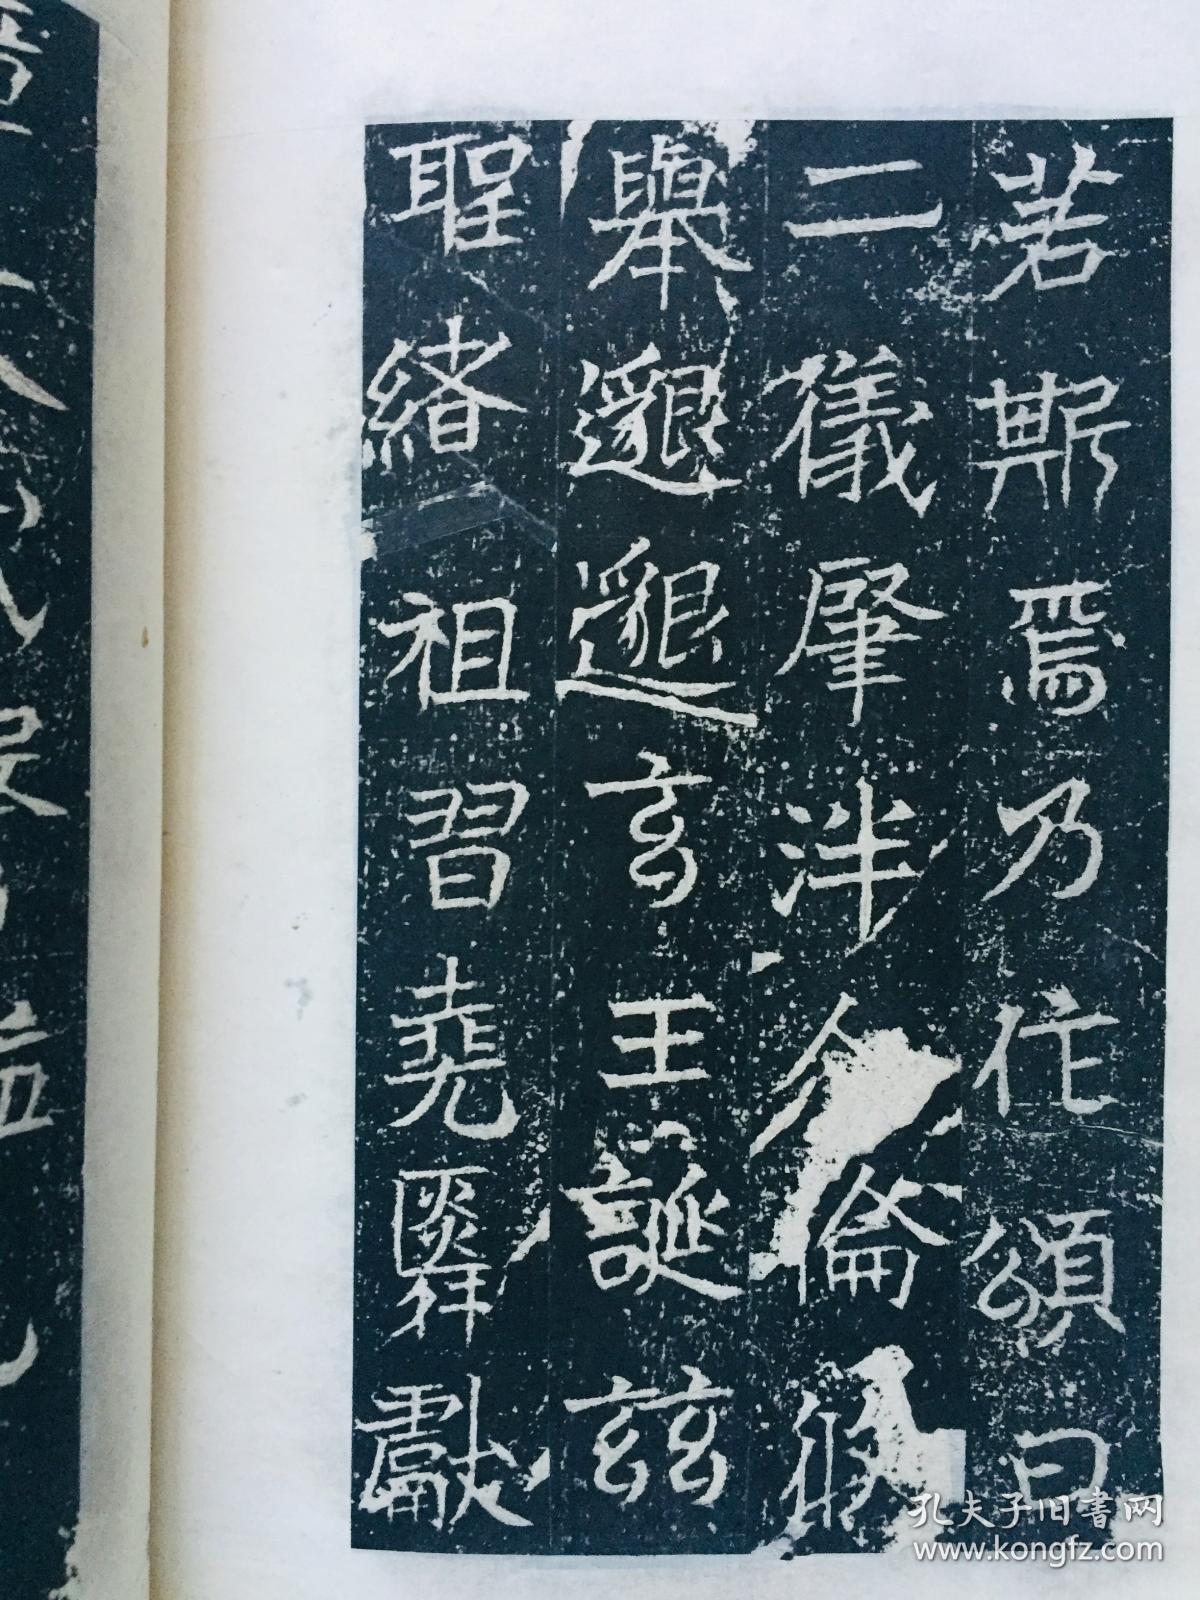 若斯焉乃作頌曰
二儀肇泮人倫攸
舉邈邈玄王誕茲
聖緒祖習堯舜獻
孔夫子旧书网
www.kongfz.com